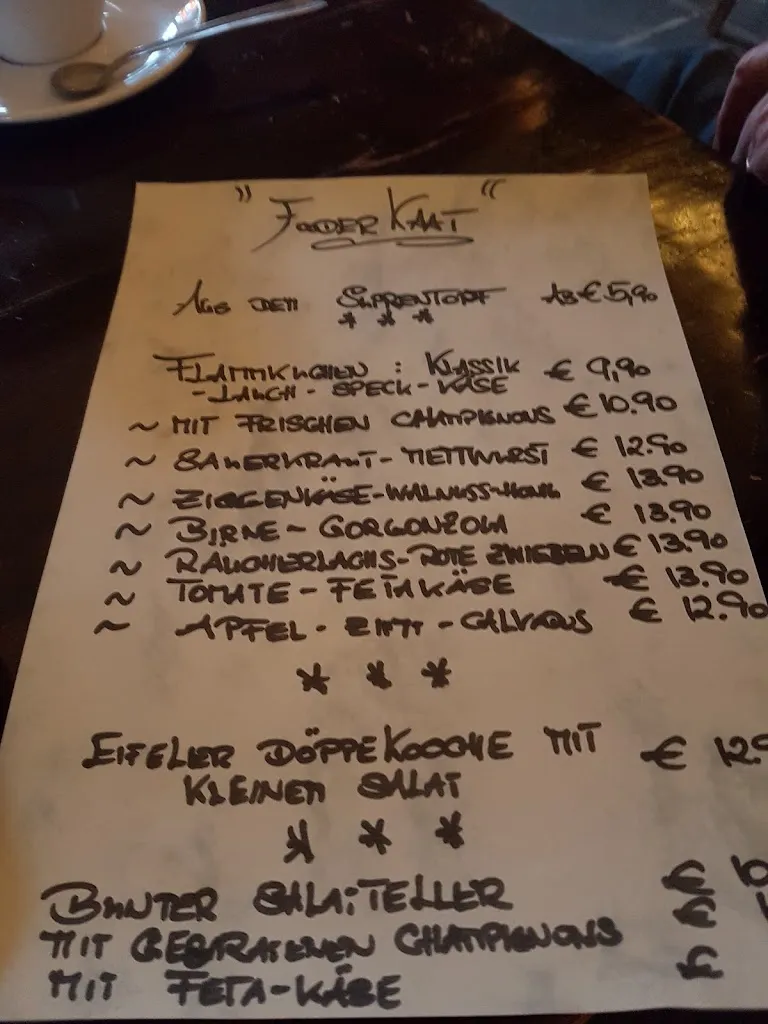 "FOODER KAAT"
AUS DEM SUPPENTOPF AB € 5,90
* * *
FLAMMKUCHEN : KLASSIK € 9,90
-LAUCH - SPECK - KÄSE
~ MIT FRISCHEN CHAMPIGNONS € 10.90
~ SAUERKRAUT - METTWURST € 12.90
~ ZIEGENKÄSE-WALNUSS-HONIG € 13.90
~ BIRNE - GORGONZOLA € 13.90
~ RÄUCHERLACHS-ROTE ZWIEBELN € 13.90
~ TOMATE - FETAKÄSE € 13.90
~ APFEL - ZIMT - CALVADOS € 12.90
* * *
EIFELER DÖPPEKOOCHE MIT € 12.9
KLEINEM SALAT
* * *
BUNTER SALATTELLER € 10
MIT GEBRATENEN CHAMPIGNONS € 1
MIT FETA-KÄSE €